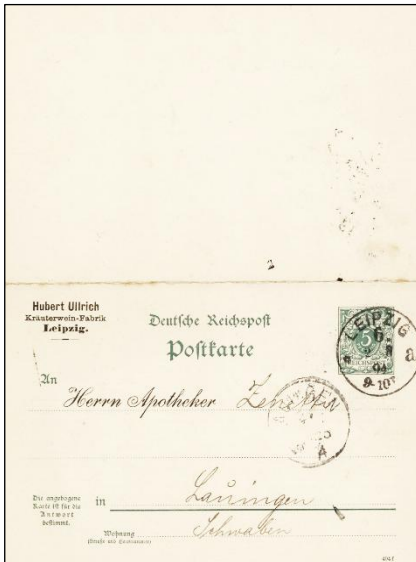 Hubert Ullrich
Kräuterwein-Fabrik
Leipzig.
Deutsche Reichspost
Postkarte
LEIPZIG
5
9-10V
a
An
Herrn Apotheker
A
Die angebogene
Karte ist für die
Antwort
bestimmt.
in Lauingen
Schwaben
Wohnung
(Straße und Hausnummer)